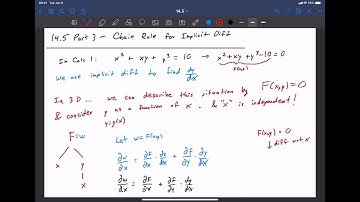 14.5 -
14.5 Part 3 - Chain Rule for Implicit Diff
In Calc 1: x² + xy + y³ = 10 → x² + xy + y³ - 10 = 0
F(x,y)
use implicit diff to find dy/dx
In 3D ... we can describe this situation by F(x,y) = 0
& consider y as a function of x. & "x" is independent!
y = y(x)
F = w
Let w = F(x,y)
F(x,y) = 0
↓ diff wrt x
x y
x
∂w/∂x = ∂F/∂x · dx/dx + ∂F/∂y · dy/dx
∂w/∂x = ∂F/∂x + ∂F/∂y · dy/dx